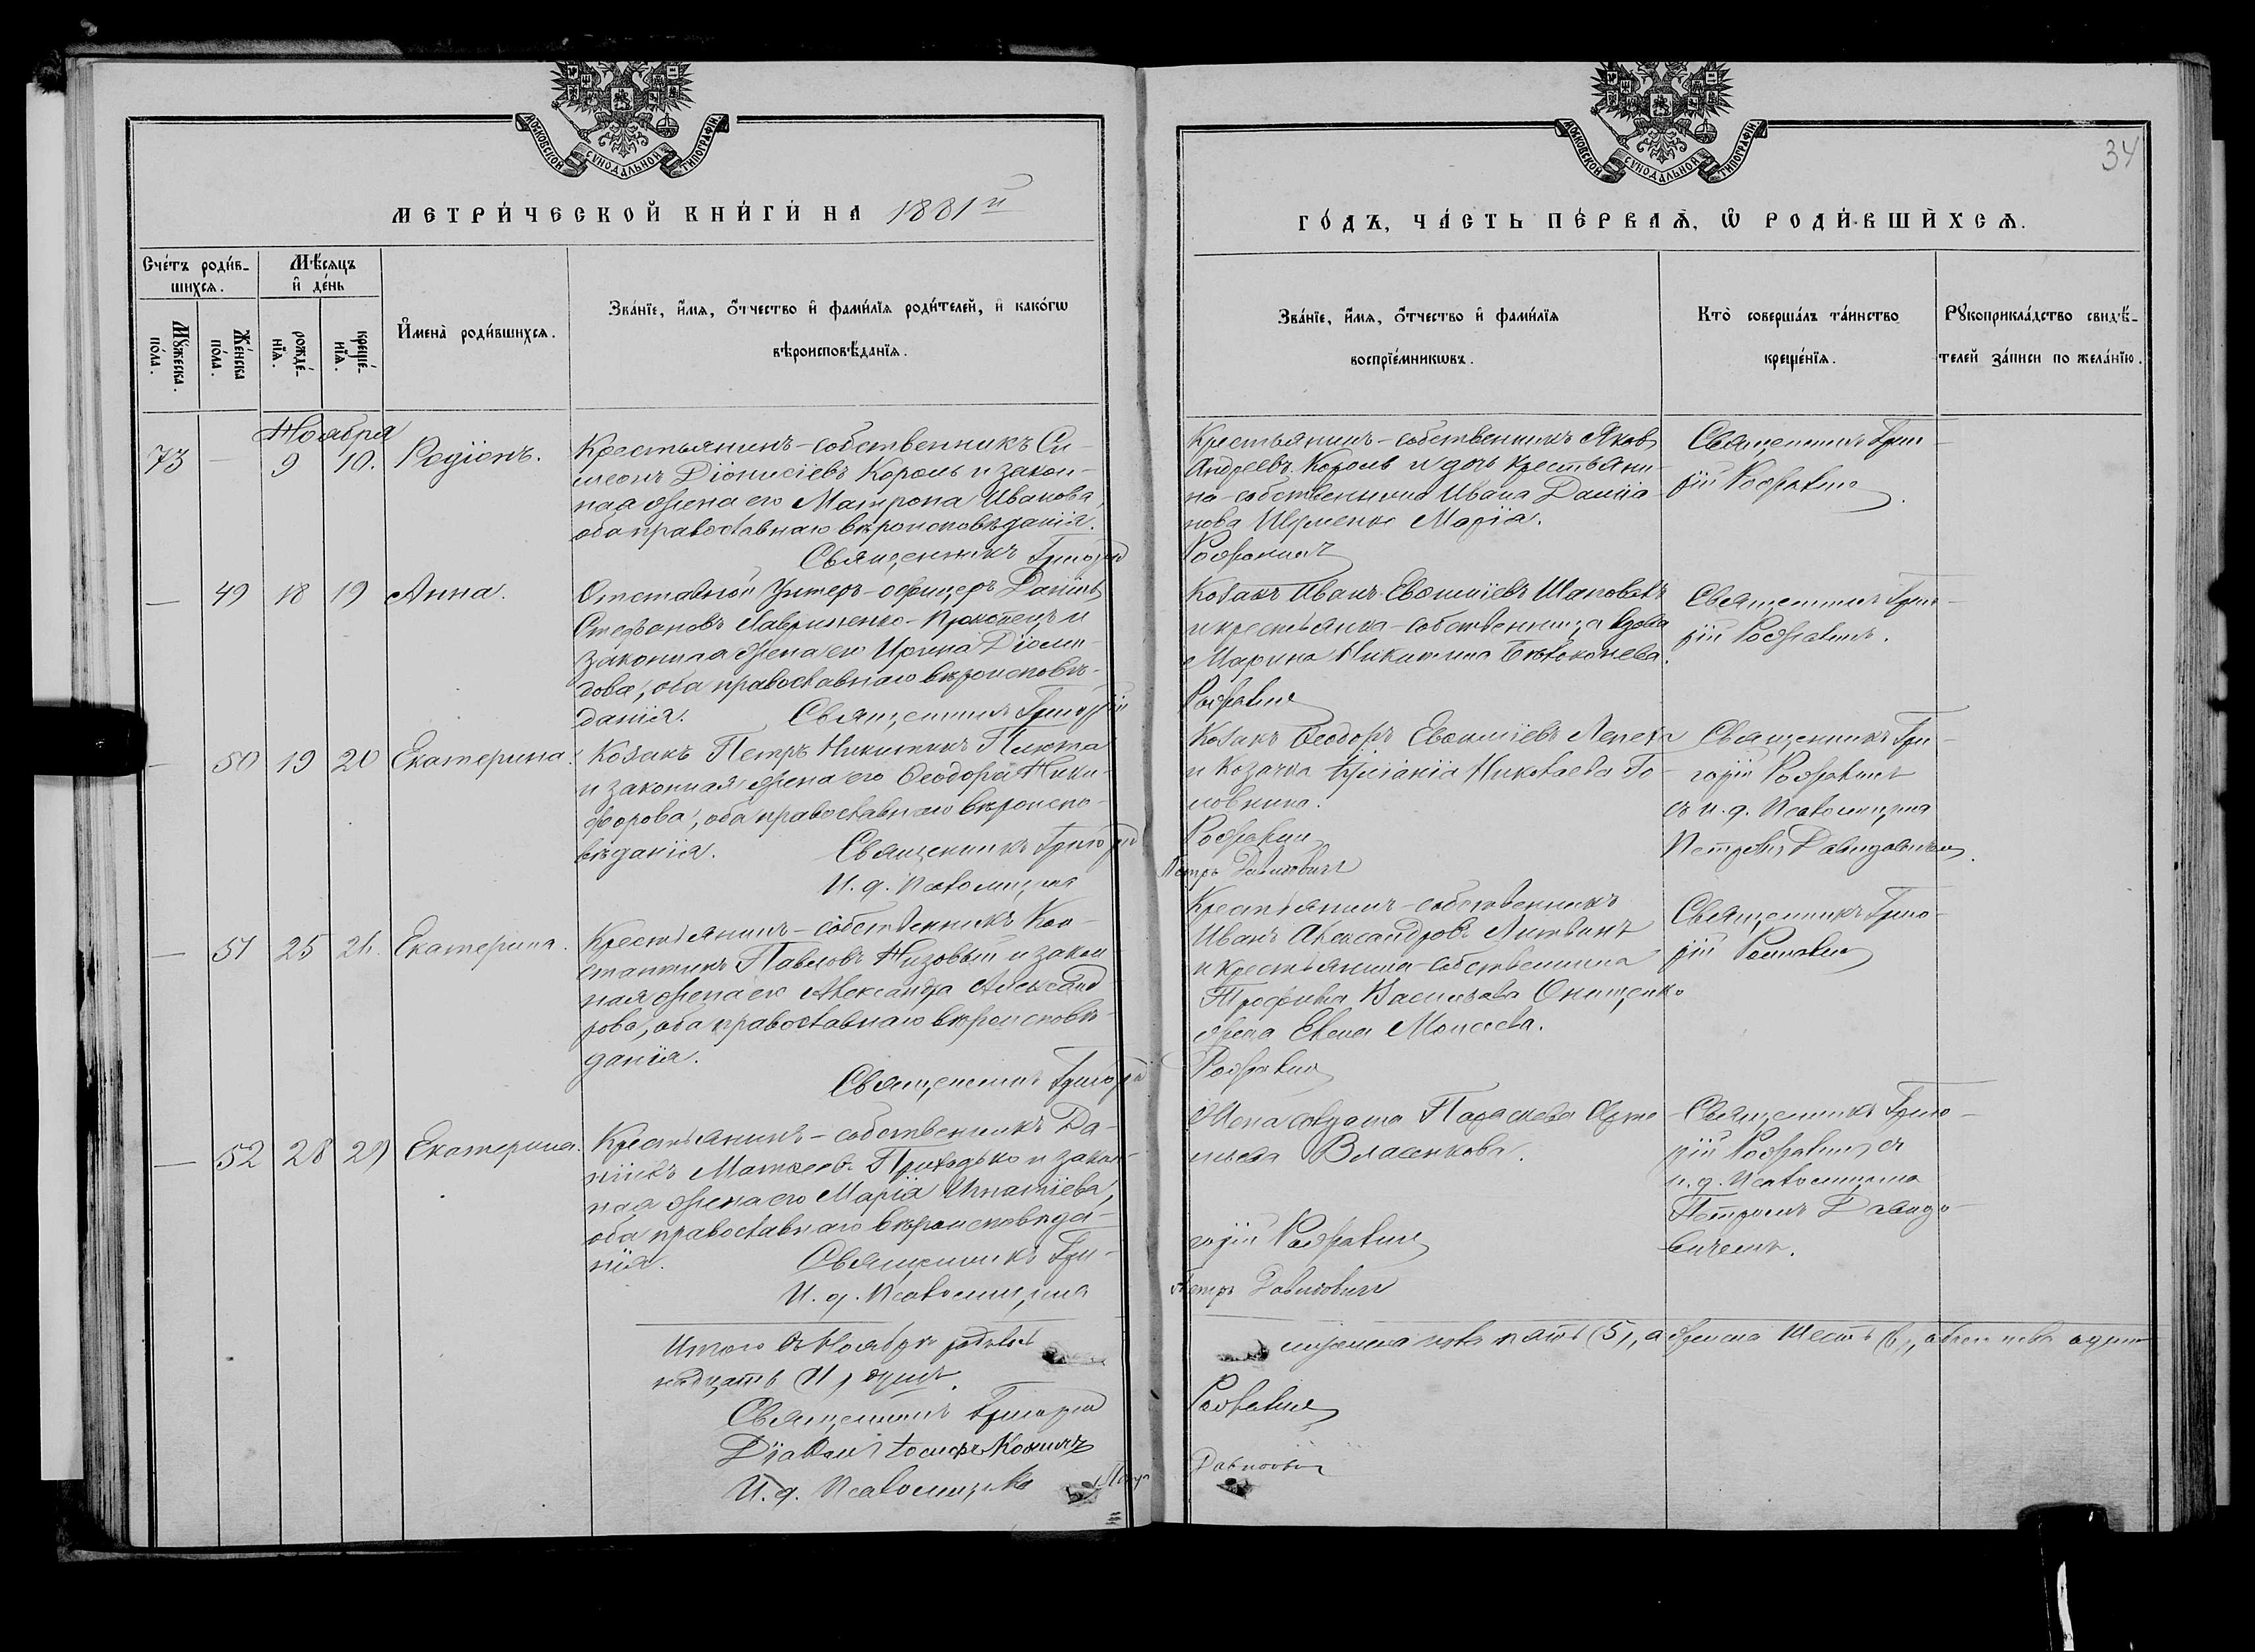 МОСКОВСКОЙ СѴНОДАЛЬНОЙ ТИПОГРАФІИ.
МЕТРИ́ЧЕСКОЙ КНИ́ГИ НА 1881й
Счéтъ роди́в-
шихсѧ.
Мꙋ́жеска по́ла.
Же́нска по́ла.
Мѣ́сяцъ
и҆ де́нь
рожде́-
нїѧ.
креще́-
нїѧ.
И҆мена̀ роди́вшихсѧ.
Зва́нїе, и҆́мѧ, ѻ҆́тчество и҆ фами́лїѧ роди́телей, и҆ како́гѡ
вѣроисповѣ́данїѧ.
Ноября
73 — 9 10. Родіонъ.
Крестьянинъ-собственникъ Си-
меонъ Діонисіевъ Король и закон-
ная жена его Матрона Иванова,
оба православнаго вѣроисповѣданія.
Священникъ Григорій
— 49 18 19 Анна.
Отставной Унтеръ-офицеръ Даніилъ
Стефановъ Лавриненко-Прокопецъ и
законная жена его Ирина Діоми-
дова, оба православнаго вѣроисповѣ-
данія. Священникъ Григорій
— 50 19 20 Екатерина.
Козакъ Петръ Никитинъ
и законная жена его Ѳеодора Ники-
форова, оба православнаго вѣроиспо-
вѣданія. Священникъ Григорій
И. д. Псаломщика
— 51 25 26. Екатерина.
Крестьянинъ-собственникъ Кон-
стантинъ Павловъ Низовый и закон
ная жена его Александра Александ
рова, оба православнаго вѣроисповѣ-
данія.
Священникъ Григорій
— 52 28 29 Екатерина.
Крестьянинъ-собственникъ Да-
ніилъ Матѳеевъ Приходько и закон-
ная жена его Марія Игнатіева,
оба православнаго вѣроисповѣда-
нія. Священникъ Гри-
И. д. Псаломщика
Итого въ Ноябрѣ
надцать (11) душъ.
Священникъ Григорій
Діаконъ Іосифъ
И. д. Псаломщика Петръ
МОСКОВСКОЙ СѴНОДАЛЬНОЙ ТИПОГРАФІИ.
34
ГО́ДЪ, ЧА́СТЬ ПЕ́РВАѦ, Ѡ҆ РОДИ́ВШИХСѦ.
Зва́нїе, и҆́мѧ, ѻ҆́тчество и҆ фами́лїѧ
воспрїе́мникѡвъ.
Кто̀ соверша́лъ та́инство
креще́нїѧ.
Рꙋкоприкла́дство свидѣ́-
телей за́писи по жела́нїю.
Крестьянинъ-собственникъ Яковъ
Андреевъ Король и дочь крестьяни-
на-собственника Ивана Даніи-
лова Марія.
Священникъ Григо-
рій
Козакъ Иванъ Евѳиміевъ Шаповалъ
и крестьянка-собственница вдова
Марина Никитина Бѣлоконева.
Священникъ Григо-
рій
Козакъ Ѳеодоръ Евѳиміевъ Лепеха
и Козачка Николаева Го-
ловкина.
Петръ Давидовичъ
Священникъ Гри-
горій
съ и. д. Псаломщика
Петромъ Давидовичемъ.
Крестьянинъ-собственникъ
Иванъ Александровъ Литвинъ
и крестьянина-собственника
Трофима Васильева Онищенко
жена Елена Моисеева.
Священникъ Григо-
рій
Жена солдата Параскева Арте-
міева Власенкова.
Священникъ Григо-
рій съ
и. д. Псаломщика
Петромъ Давидо-
вичемъ.
горій
Петръ Давидовичъ
мужеска пола пять (5), а женска шесть (6), обоего пола один
Давидовичъ